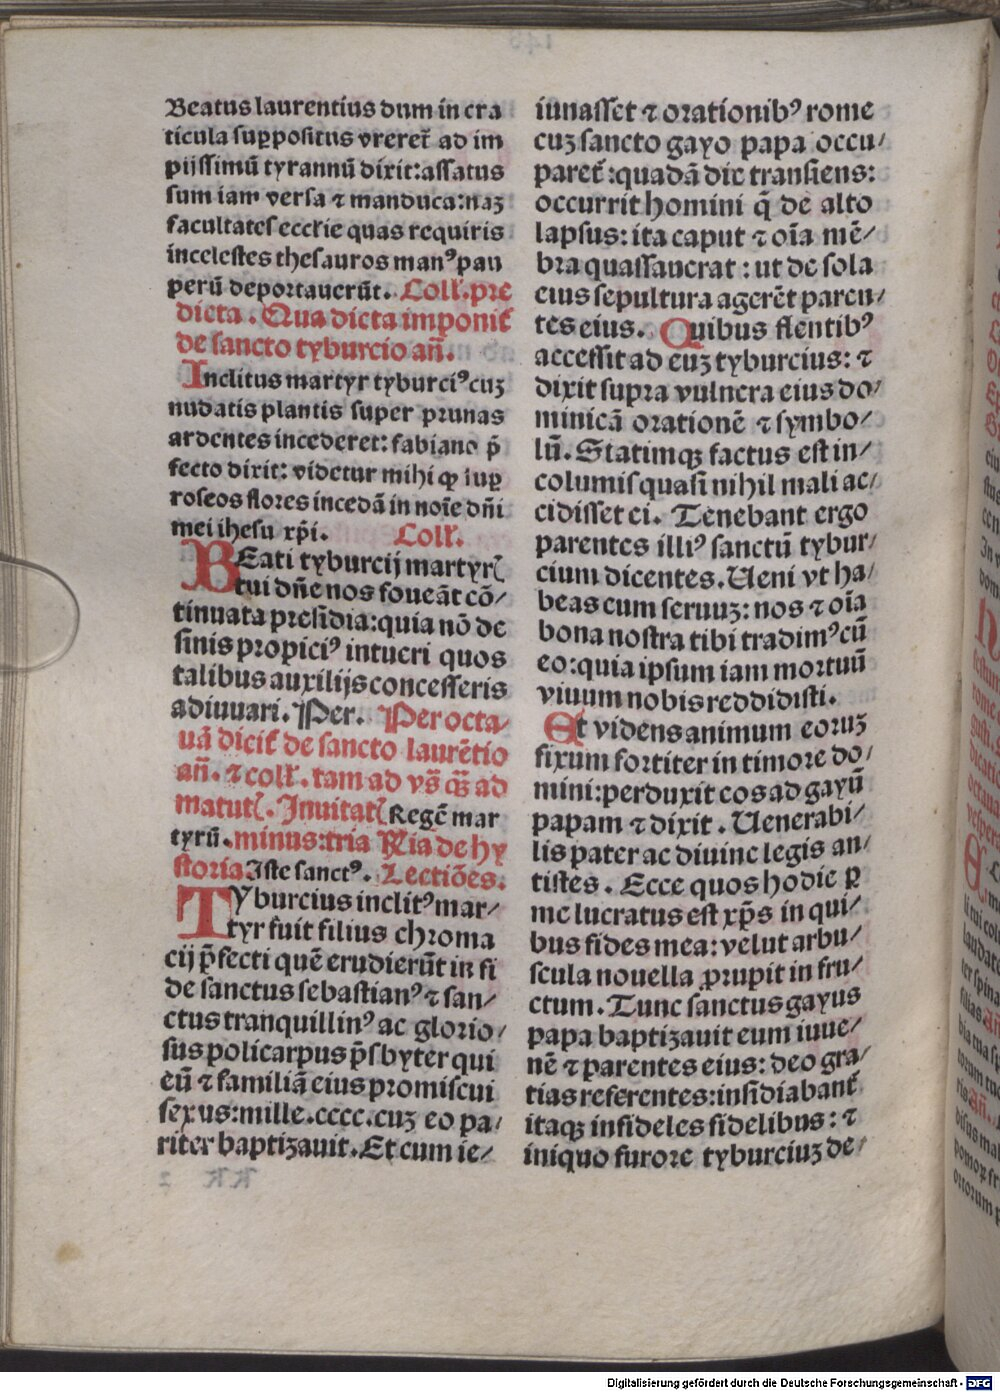 Beatus laurentius dum in cra
ticula supposituſ vreret̄ ad im
pijſſimū tyrannū dixit: aſſatus
ſum iam verſa ⁊ manduca: naꝫ
facultateſ eccl'ie quas requiris
in celeſtes theſauros man⁹ pau
perū deportauerūt. Coll'. pre
dicta. Qua dicta imponit̄
de ſancto tyburcio an̄.
Inclitus martyr tyburci⁹ cuꝫ
nudatis plantis ſuper prunas
ardentes incederet: fabiano p̄
fecto dixit: videtur mihi ꝙ ſuꝑ
roſeos flores incedā in noīe dn̄i
mei iheſu xp̄i. Coll'.
BEati tyburcij martyrꝭ
tui dn̄e nos foueāt cō⸗
tinuata preſidia: quia nō de
ſinis propici⁹ intueri quos
talibus auxilijs conceſſeris
adiuuari. Per. Per octa⸗
uā dicit̄ de ſancto laurētio
an̄. ⁊ coll'. tam ad vs̄ qꝫ̄ ad
matutꝭ. Inuitatꝭ Regē mar
tyrū. minus: tria Ria de hy
ſtoria Iſte ſanct⁹. Lectiōes.
TYburcius inclit⁹ mar⸗
tyr fuit filius chroma
cij p̄fecti quē erudierūt in fi
de ſanctus ſebaſtian⁹ ⁊ ſan⸗
ctus tranquillin⁹ ac glorio⸗
ſus policarpus p̄ſbyter qui
eū ⁊ familiā eius promiſcui
ſexus: mille.cccc.cuꝫ eo pa⸗
riter baptiꝫauit. Et cum ie⸗
iunaſſet ⁊ orationib⁹ rome
cuꝫ ſancto gayo papa occu⸗
paret̄: quadā die tranſiens:
occurrit homini q̄ de alto
lapſus: ita caput ⁊ oīa mē⸗
bra quaſſauerat: ut de ſola
eius ſepultura agerēt paren⸗
tes eius. Quibus flentib⁹
acceſſit ad euꝫ tyburcius: ⁊
dixit ſupra vulnera eius do⸗
minicā orationē ⁊ ſymbo⸗
lū. Statimqꝫ factus eſt in⸗
columiſ quaſi nihil mali ac⸗
cidiſſet ei. Tenebant ergo
parentes illi⁹ ſanctū tybur⸗
cium dicentes. Ueni vt ha⸗
beas eum ſeruuꝫ: nos ⁊ oīa
bona noſtra tibi tradim⁹ cū
eo: quia ipſum iam mortuū
viuum nobis reddidiſti.
Et videns animum eoruꝫ
fixum fortiter in timore do⸗
mini: perduxit eos ad gayū
papam ⁊ dixit. Uenerabi⸗
lis pater ac diuine legis an⸗
tiſtes. Ecce quos hodie ꝑ
me lucratus eſt xp̄s in qui⸗
bus fides mea: velut arbu⸗
ſcula nouella ꝓrupit in fru⸗
ctum. Tunc ſanctus gayus
papa baptiꝫauit eum iuue⸗
nē ⁊ parentes eius: deo gra⸗
tias referentes: inſidiabant̄
itaqꝫ infideles fidelibus: ⁊
iniquo furore tyburciuꝫ de⸗
Digitalisierung gefördert durch die Deutsche Forschungsgemeinschaft - DFG